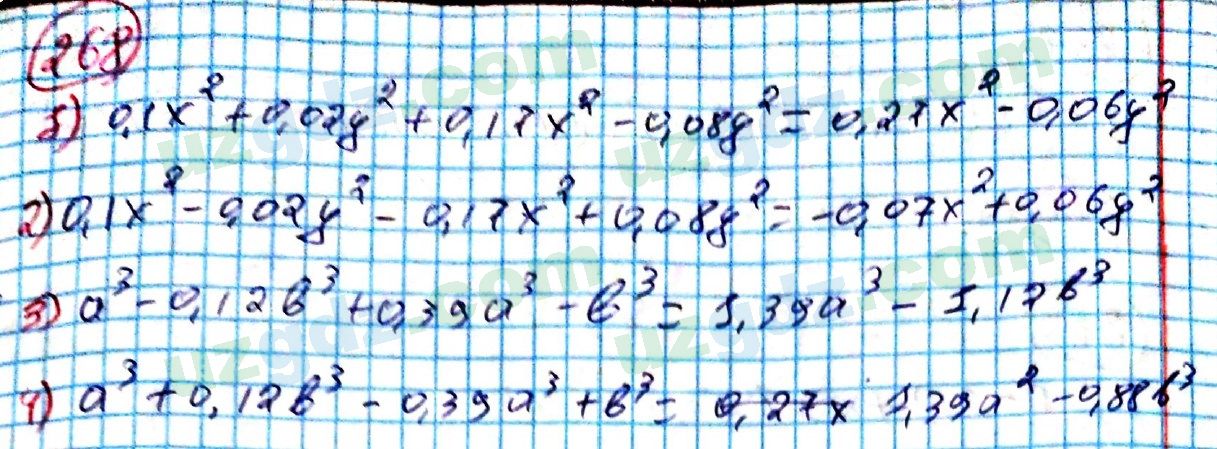 268
1) 0,1x² + 0,02y² + 0,17x² - 0,08y² = 0,27x² - 0,06y²
2) 0,1x² - 0,02y² - 0,17x² + 0,08y² = -0,07x² + 0,06y²
3) a³ - 0,12b³ + 0,39a³ - b³ = 1,39a³ - 1,12b³
4) a³ + 0,12b³ - 0,39a³ + b³ = 0,27x 1,39a² - 0,88b³
uzgdz.com
uzgdz.com
uzgdz.com
uzgdz.com